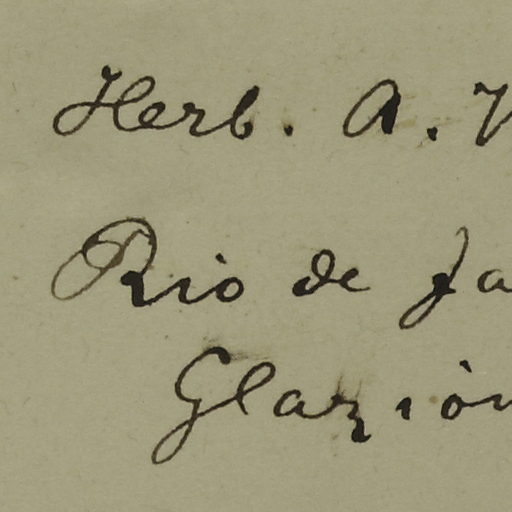 Herb. A. V
Rio de Ja
Glaziou